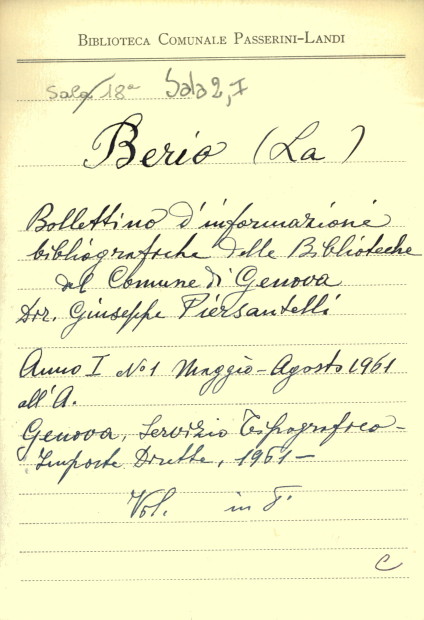 BIBLIOTECA COMUNALE PASSERINI-LANDI
Sala 18ª Sala 2, I
Berio (La)
Bollettino d'informazione
bibliografiche delle Biblioteche
del Comune di Genova
Dir. Giuseppe Piersantelli
Anno I Nº1 Maggio-Agosto 1961
all'A.
Genova, Servizio Tipografico-
Imposte Dirette, 1961-
Vol. in 8.
C